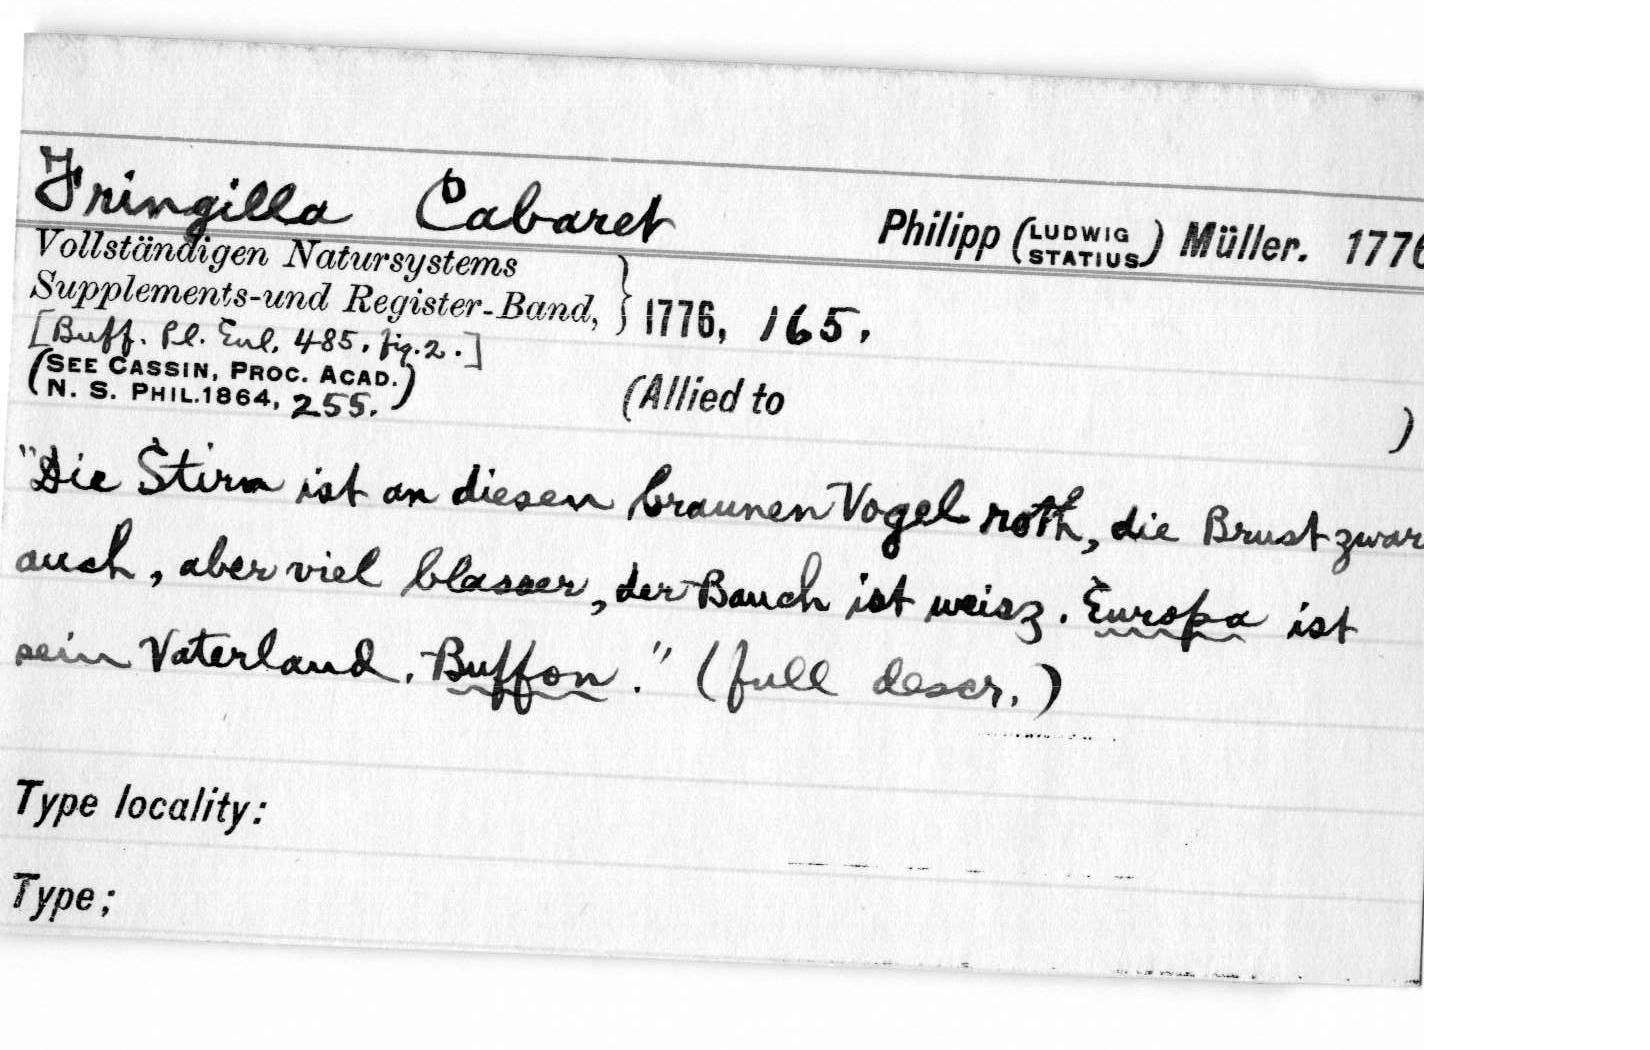 Fringilla Cabaret Philipp (LUDWIG STATIUS) Müller. 1776
Vollständigen Natursystems
Supplements-und Register-Band, } 1776, 165.
[Buff. Pl. Enl. 485. fig. 2.]
(SEE CASSIN, PROC. ACAD.
N. S. PHIL. 1864, 255.)
(Allied to )
"Die Stirn ist an diesen braunen Vogel roth, die Brust zwar
auch, aber viel blasser, der Bauch ist weisz. Europa ist
sein Vaterland. Buffon." (full descr.)
Type locality:
Type;